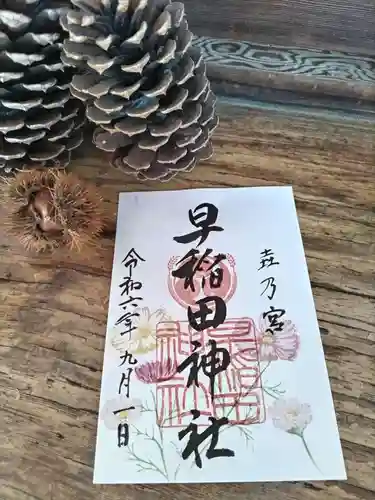 垚乃宮
早稲田神社
令和六年九月一日